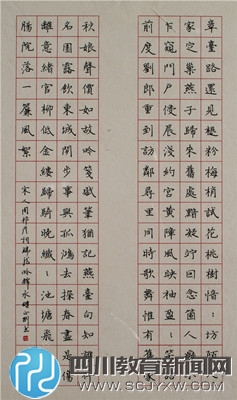 章臺路還見褪粉梅梢試花桃樹愔:坊陌人
家定巢燕子歸來舊處黯凝竚因念箇人癡小
乍窺門戶侵晨淺約宮黃障風映袖盈:笑語
前度劉郎重到訪鄰尋里同時歌舞惟有舊家
秋娘聲價如故吟箋賦筆猶記燕臺句知誰伴
名園露飲東城閒步事與孤鴻去探春盡是傷
離意緒官柳低金縷歸騎晚纖:池塘飛
腸院落一簾風絮
宋人周邦彥詞瑞龍吟
四川教育新闻网
WWW.SCJYXW.COM